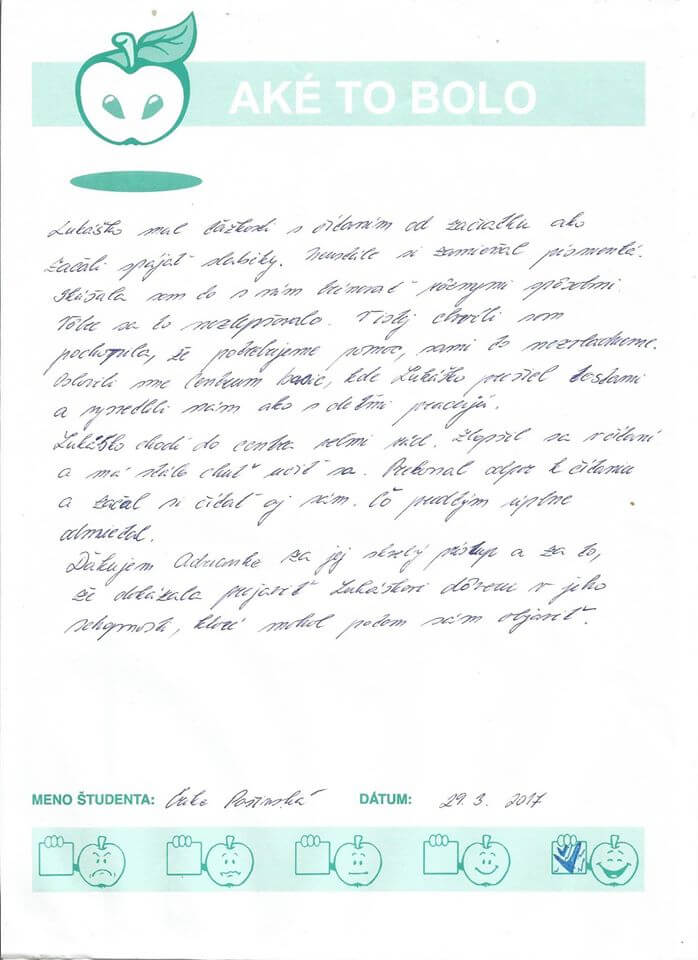 AKÉ TO BOLO
Lukáško mal ťažkosti s čítaním od začiatku ako
začali spájať slabiky. Neustále si zamieňal písmenká.
Skúšala som to s ním trénovať rôznymi spôsobmi.
Vôbec sa to nezlepšovalo. V istej chvíli som
pochopila, že potrebujeme pomoc, sami to nezvládneme.
Oslovili sme Centrum basic, kde Lukáško prešiel testami
a vysvetlili nám ako s deťmi pracujú.
Lukáško chodí do centra veľmi rád. Zlepšil sa v čítaní
a má stále chuť učiť sa. Prekonal odpor k čítaniu
a začal si čítať aj sám. Čo predtým úplne
odmietal.
Ďakujem Adrianke za jej skvelý prístup a za to,
že dokázala prejaviť Lukáškovi dôveru v jeho
schopnosti, ktoré mohol potom sám objaviť.
MENO ŠTUDENTA: DÁTUM: 29.3. 2017